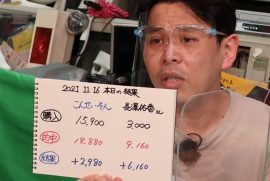 2021 11.16 本日の結果
こんせいそん 長澤佑香
購入 15,900 3,000
的中 18,880 9,160
結果 +2,980 +6,160